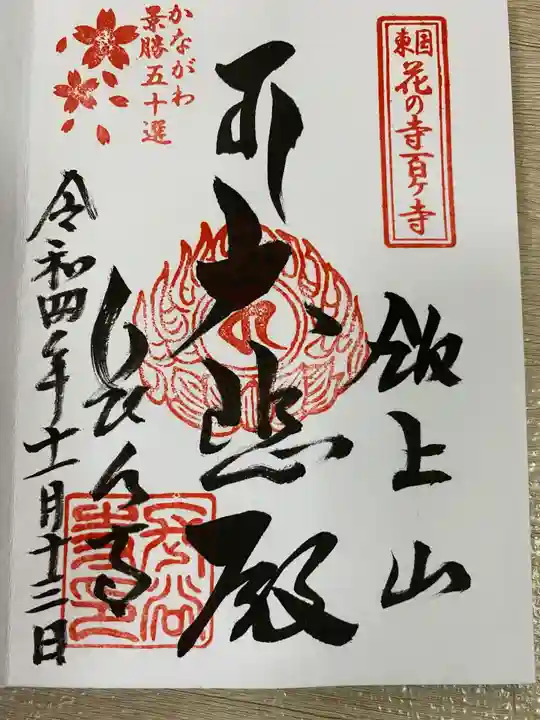 東国
花の寺百ヶ寺
飯上山
大悲殿
長谷寺
令和四年十一月十三日
かながわ
景勝五十選